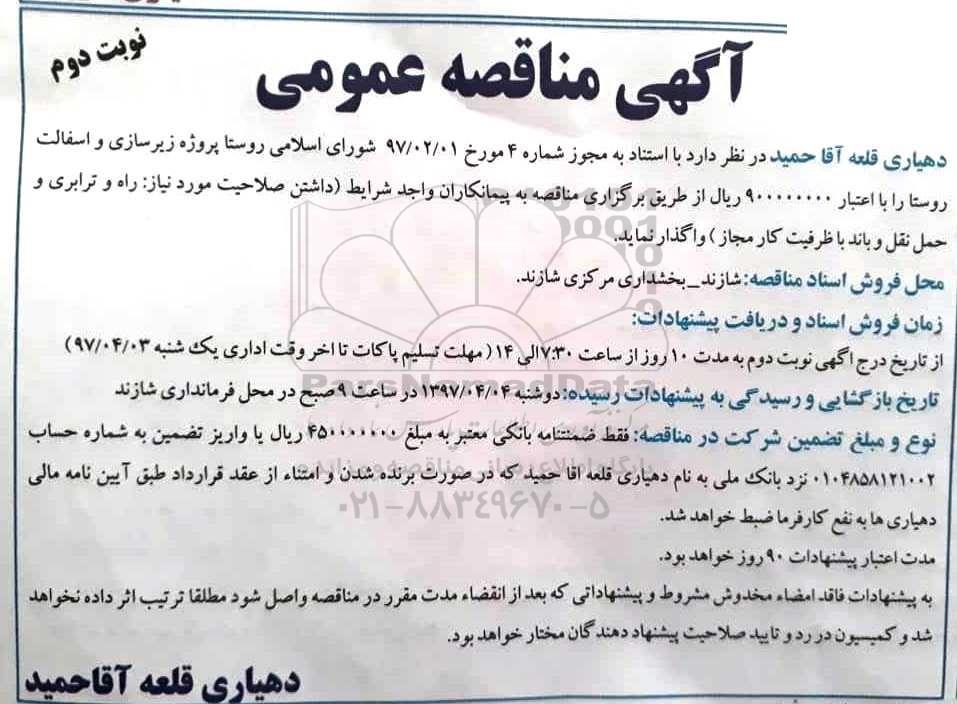 نوبت دوم
آگهی مناقصه عمومی
دهیاری قلعه آقا حمید در نظر دارد با استناد به مجوز شماره ۴ مورخ ۹۷/۰۲/۰۱ شورای اسلامی روستا پروژه زیرسازی و اسفالت
روستا را با اعتبار ۹۰۰۰۰۰۰۰۰۰ ریال از طریق برگزاری مناقصه به پیمانکاران واجد شرایط (داشتن صلاحیت مورد نیاز: راه و ترابری و
حمل نقل و باند با ظرفیت کار مجاز) واگذار نماید.
محل فروش اسناد مناقصه: شازند_بخشداری مرکزی شازند.
زمان فروش اسناد و دریافت پیشنهادات:
از تاریخ درج اگهی نوبت دوم به مدت ۱۰ روز از ساعت ۷:۳۰ الی ۱۴ ( مهلت تسلیم پاکات تا اخر وقت اداری یک شنبه ۹۷/۰۴/۰۳)
ParsNamadData
تاریخ بازگشایی و رسیدگی به پیشنهادات رسیده: دوشنبه ۱۳۹۷/۰۴/۰۴ در ساعت ۹ صبح در محل فرمانداری شازند
نوع و مبلغ تضمین شرکت در مناقصه: فقط ضمنتنامه بانکی معتبر به مبلغ ۴۵۰۰۰۰۰۰۰ ریال یا واریز تضمین به شماره حساب
پایگاه اطلاع رسانی مناقصه و مزایده
۰۱۰۴۸۵۸۱۲۱۰۰۲ نزد بانک ملی به نام دهیاری قلعه اقا حمید که در صورت برنده شدن و امتناء از عقد قرارداد طبق آیین نامه مالی
۰۲۱-۸۸۳۴۹۶۷۰-۵
دهیاری ها به نفع کارفرما ضبط خواهد شد.
مدت اعتبار پیشنهادات ۹۰ روز خواهد بود.
به پیشنهادات فاقد امضاء مخدوش مشروط و پیشنهاداتی که بعد از انقضاء مدت مقرر در مناقصه واصل شود مطلقا ترتیب اثر داده نخواهد
شد و کمیسیون در رد و تایید صلاحیت پیشنهاد دهندگان مختار خواهد بود.
دهیاری قلعه آقاحمید